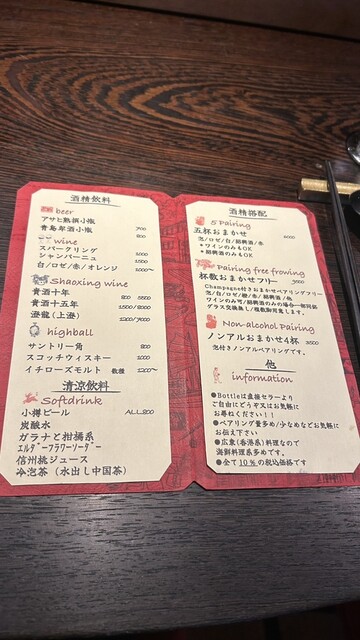 酒精飲料
beer
アサヒ熟撰小瓶 700
青島純生小瓶 800
wine
スパークリング 1000
シャンパーニュ 1500
白/ロゼ/赤/オレンジ 1000〜
Shaoxing wine
黄酒十年 800 3500
黄酒十五年 1500/8000
澄龍(上澄) 1200/7000
highball
サントリー角 800
スコッチウィスキー 1000
イチローズモルト 数種 1200〜
清涼飲料
Softdrink
小樽ビール ALL800
炭酸水
ガラナと柑橘系
エルダーフラワーソーダー
信州桃ジュース
冷泡茶(水出し中国茶)
酒精搭配
5 Pairing
五杯おまかせ 6000
泡/ロゼ/白/紹興酒/赤
*ワインのみもOK
*紹興酒のみもOK
Pairing free frowing
杯数おまかせフリー
Champagne付きおまかせペアリングフリー
泡/白/ロゼ/橙/赤/紹興酒/他
ワインのみ可/紹興酒のみの場合一部同価
グラス交換無し/複数卸用意します。
Non-alcohol Pairing
ノンアルおまかせ4杯 3500
泡付きノンアルペアリングです。
他
information
●Bottleは直接セラーより
ご自由にどうぞ又はお気軽に
お尋ねください!!
●ペアリング量多め/少なめなどお気軽に
お伝え下さい
●広東(香港系)料理なので
海鮮料理系多めです。
●全て10%の税込価格です